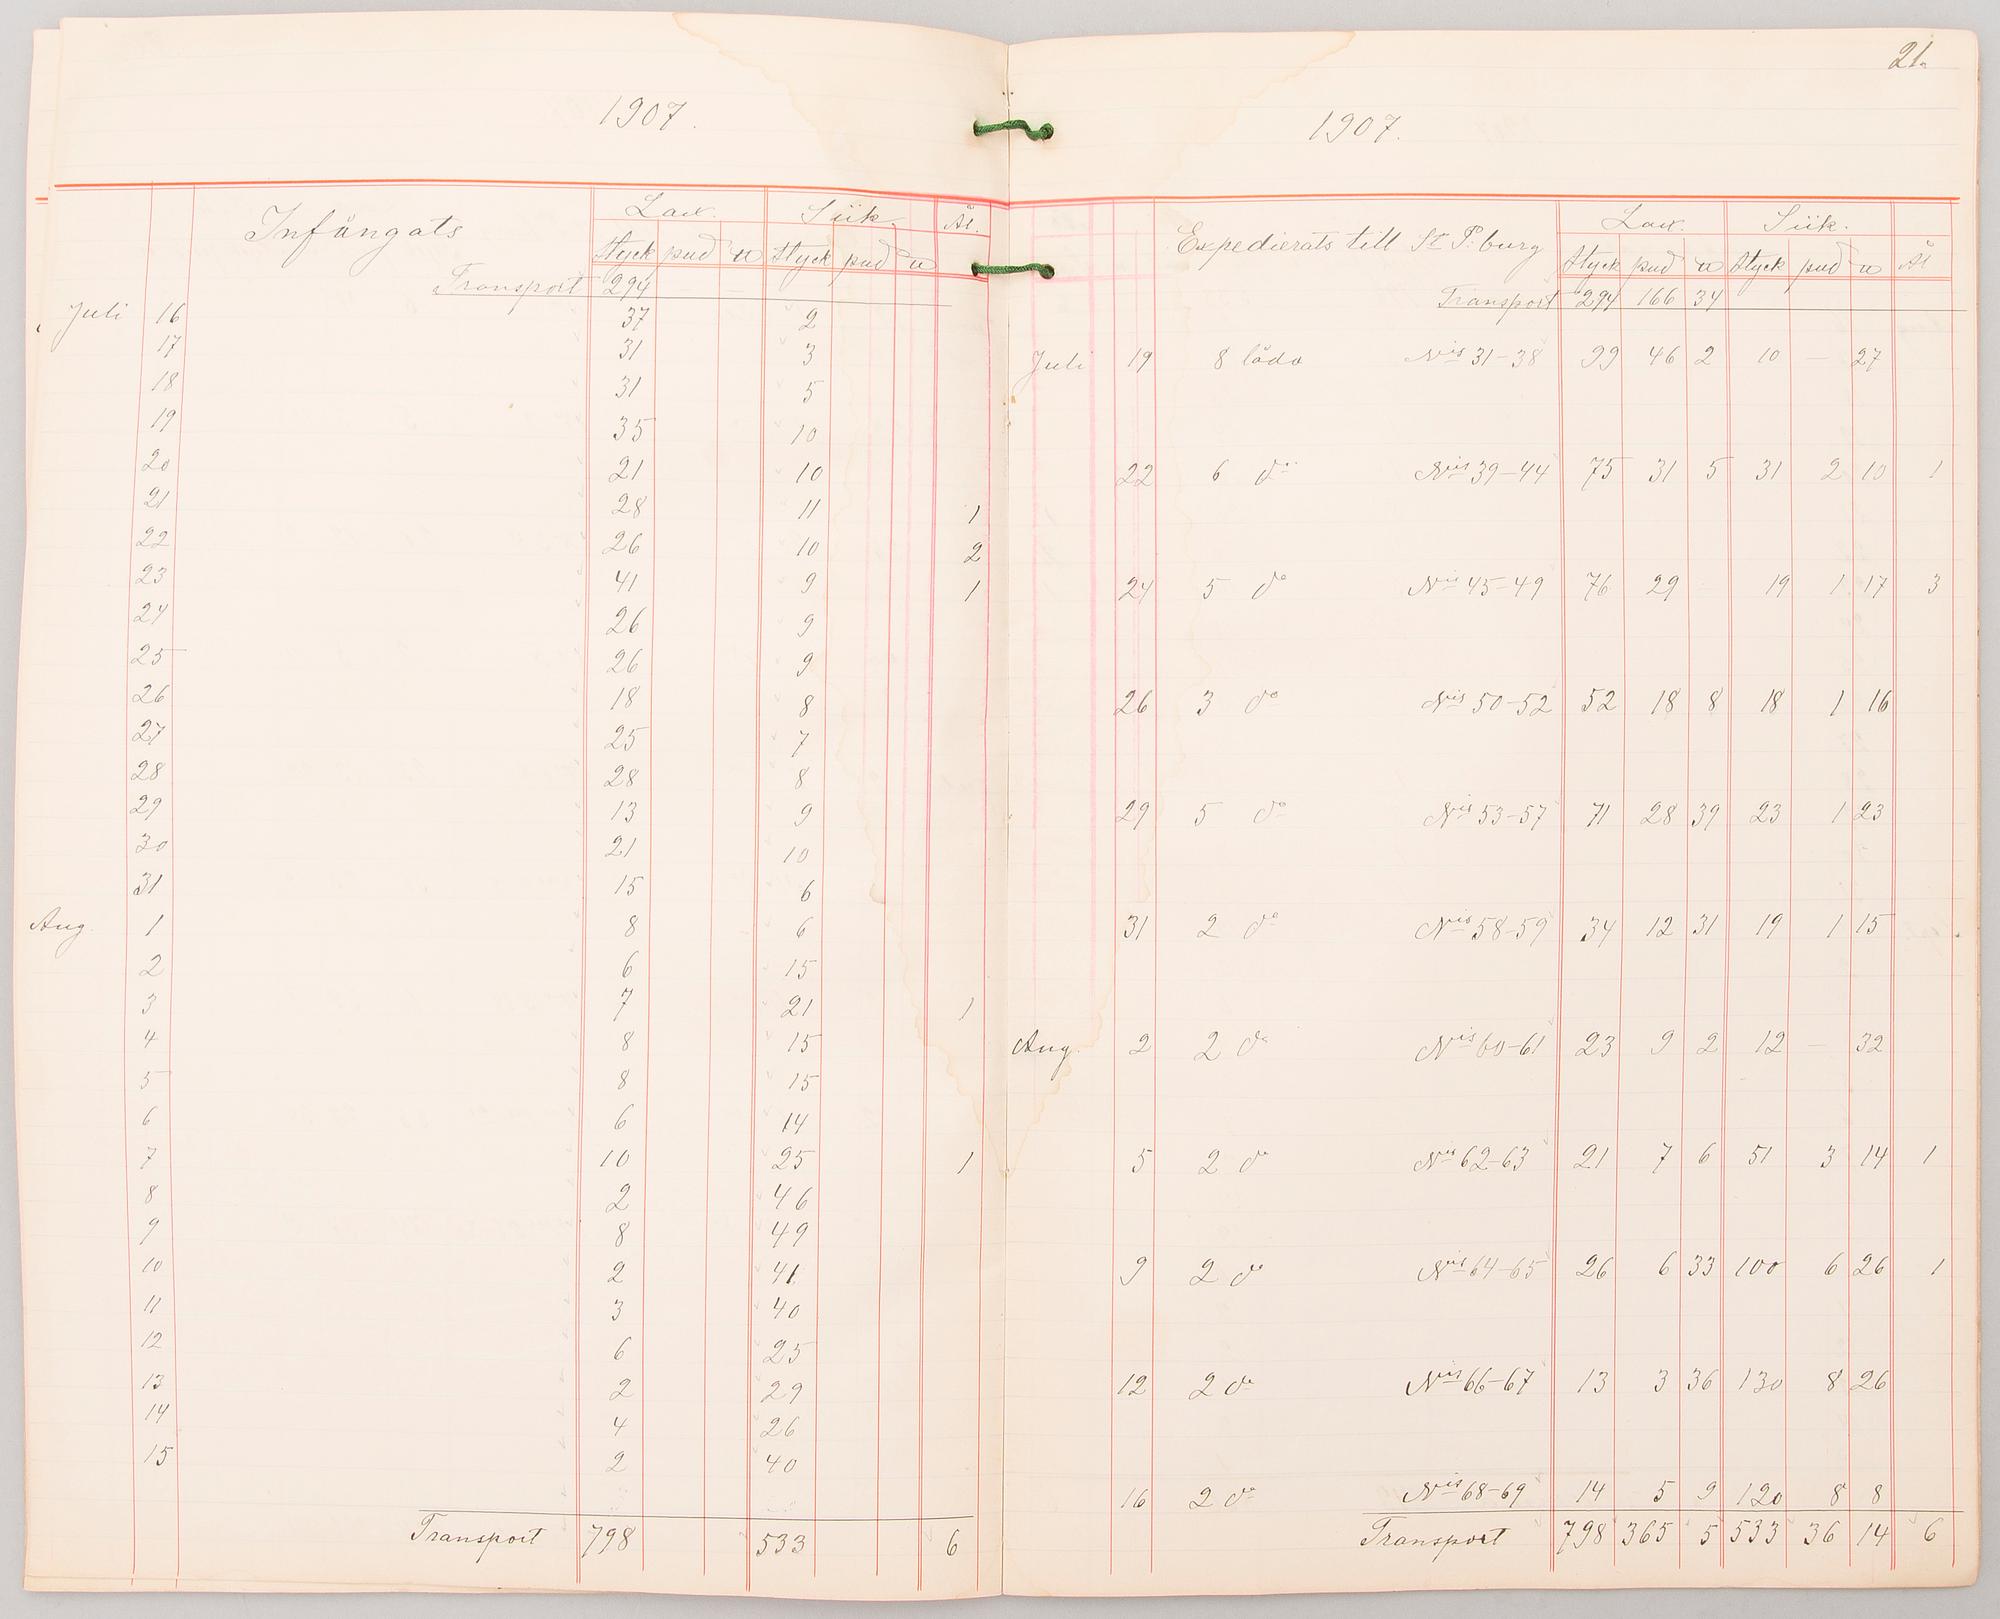 1907.
Infångats
Lax. Siik. Ål.
styck pud u styck pud u
Transport 294
Juli 16 37 2
17 31 3
18 31 5
19 35 10
20 21 10
21 28 11 1
22 26 10 2
23 41 9 1
24 26 9
25 26 9
26 18 8
27 25 7
28 28 8
29 13 9
30 21 10
31 15 6
Aug. 1 8 6
2 6 15
3 7 21 1
4 8 15
5 8 15
6 6 14
7 10 25 1
8 2 46
9 8 49
10 2 41
11 3 40
12 6 25
13 2 29
14 4 26
15 2 40
Transport 798 533 6
21.
1907.
Expedierats till St P:burg
Lax. Siik. Ål
styck pud u styck pud u
Transport 294 166 34
Juli 19 8 låda Nris 31-38 99 46 2 10 — 27
22 6 do Nris 39-44 75 31 5 31 2 10 1
24 5 do Nris 45-49 76 29 19 1 17 3
26 3 do Nris 50-52 52 18 8 18 1 16
29 5 do Nris 53-57 71 28 39 23 1 23
31 2 do Nris 58-59 34 12 31 19 1 15
Aug. 2 2 do Nris 60-61 23 9 2 12 — 32
5 2 do Nris 62-63 21 7 6 51 3 14 1
9 2 do Nris 64-65 26 6 33 100 6 26 1
12 2 do Nris 66-67 13 3 36 130 8 26
16 2 do Nris 68-69 14 5 9 120 8 8
Transport 798 365 5 533 36 14 6